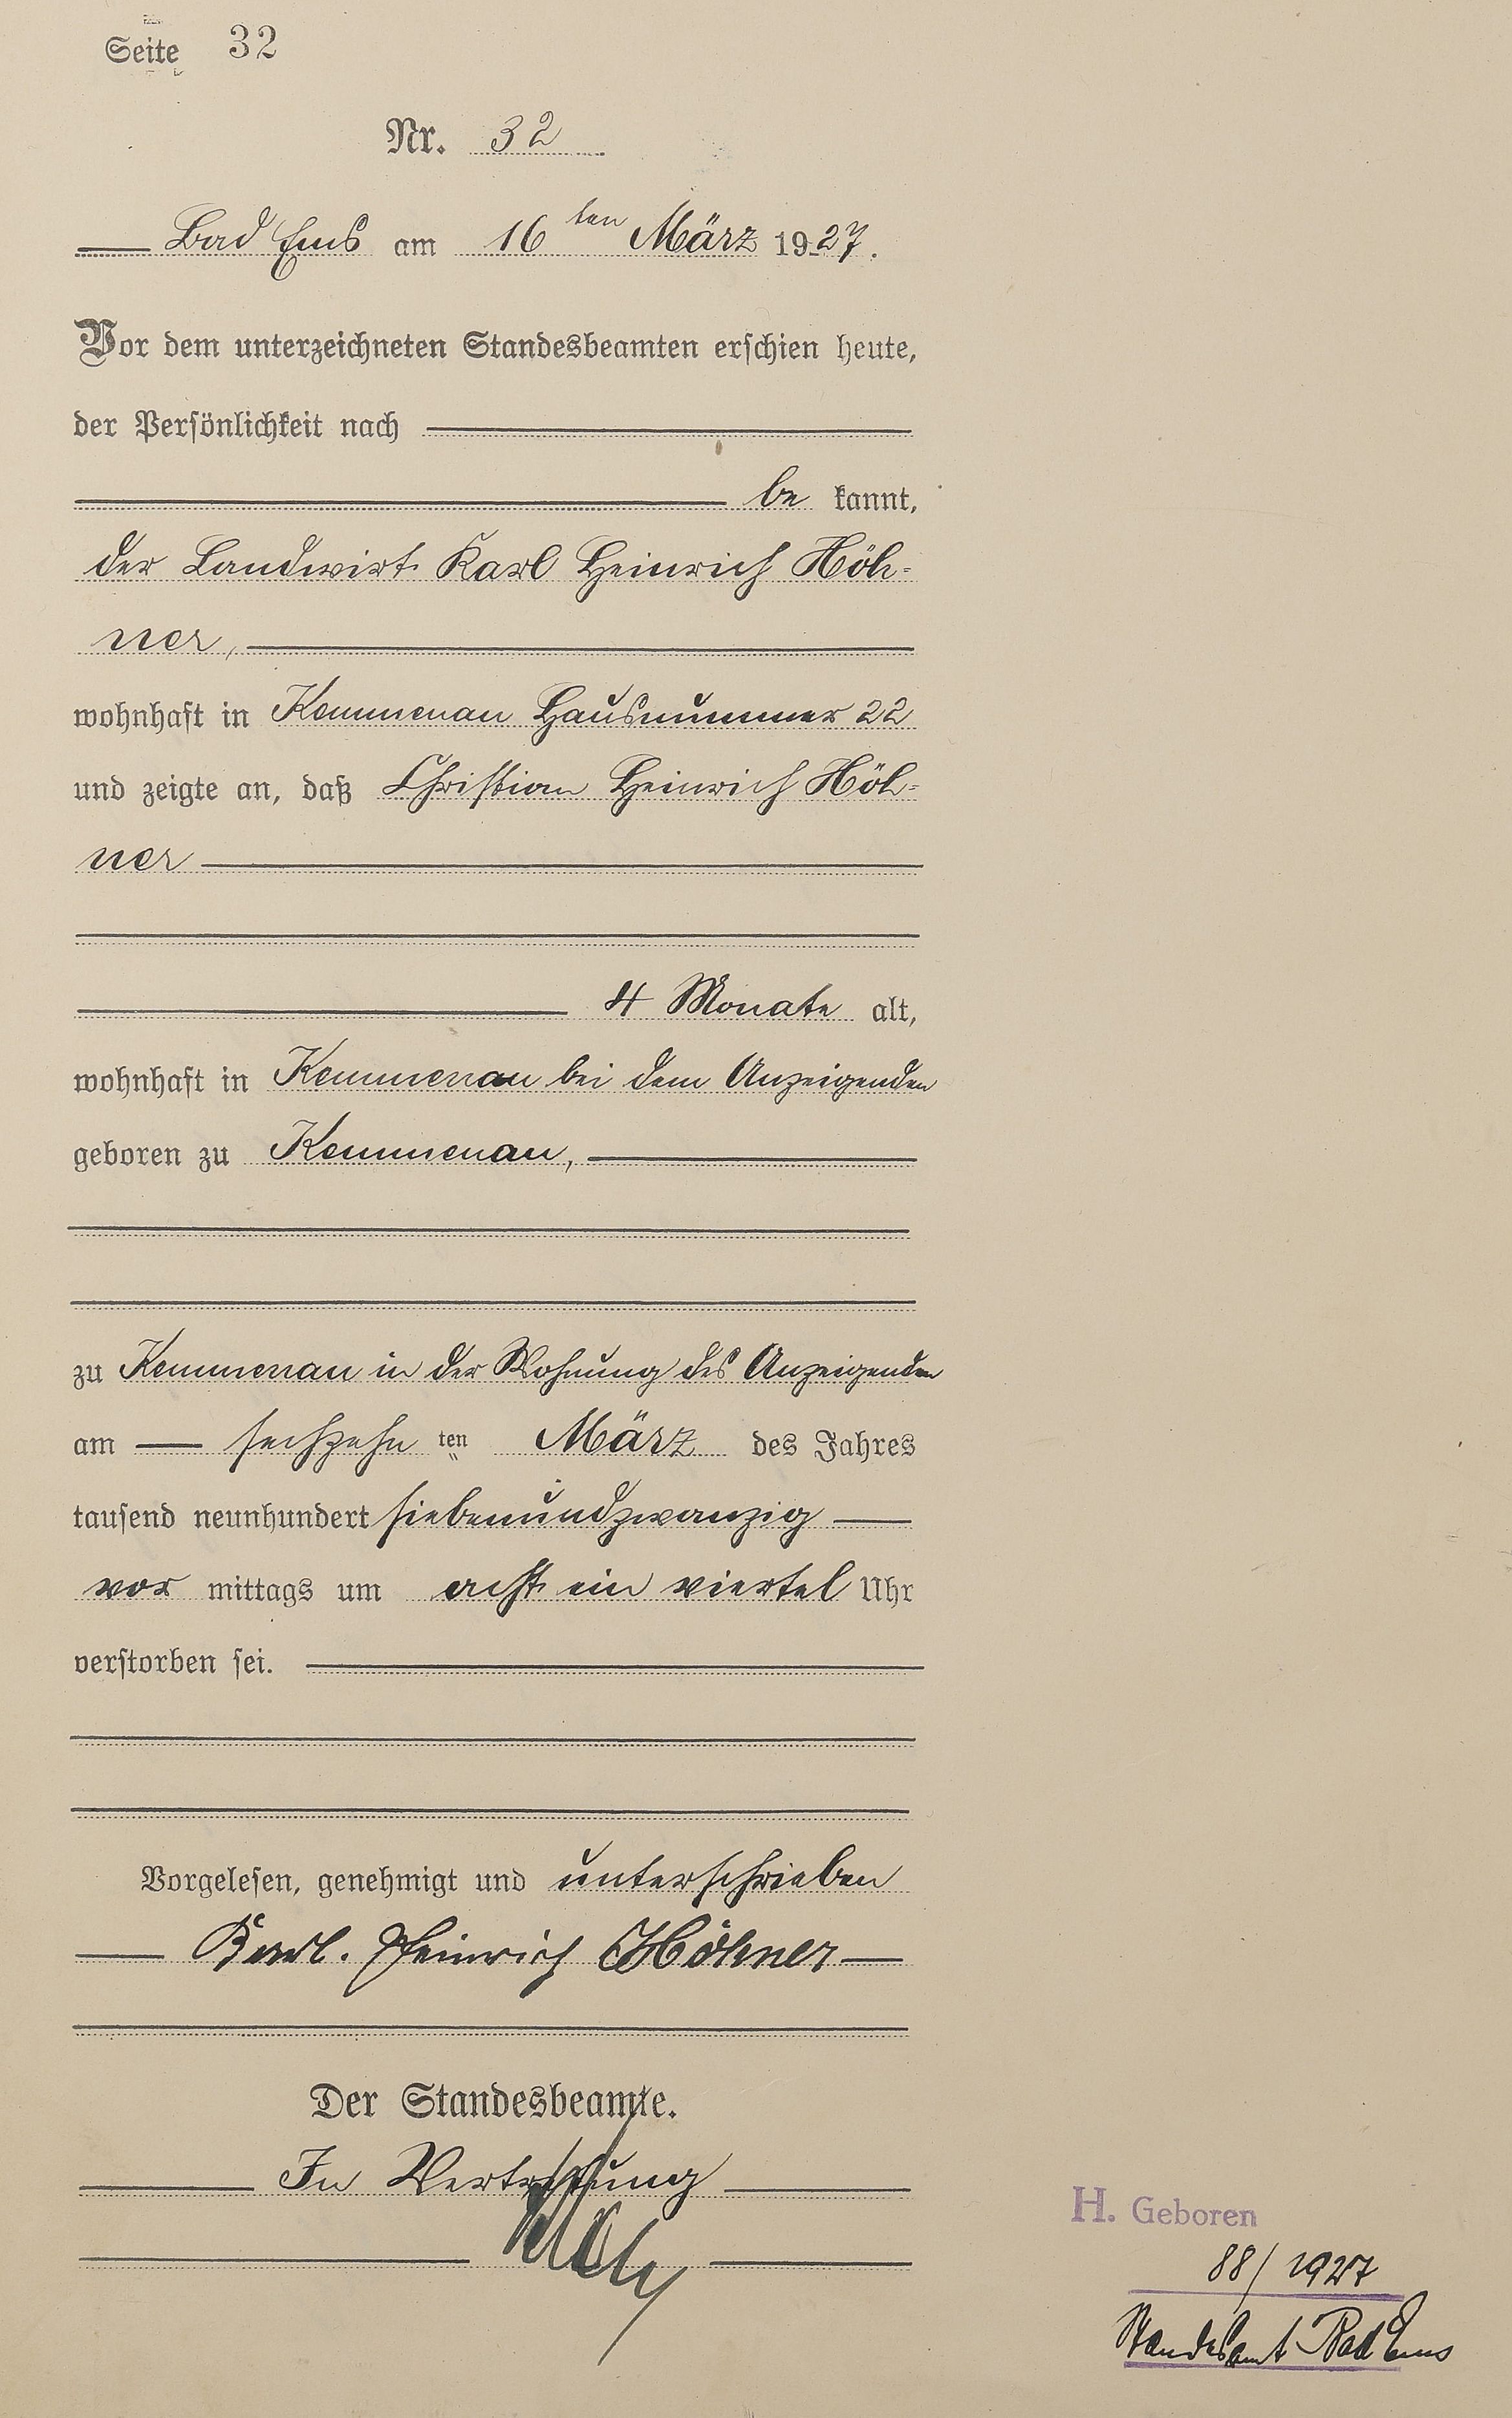 Seite 32
Nr. 32
Bad Ems am 16ten März 1927.
Vor dem unterzeichneten Standesbeamten erschien heute,
der Persönlichkeit nach
be kannt,
der Landwirt Karl Heinrich Höh-
ner,
wohnhaft in Kemmenau Hausnummer 22
und zeigte an, daß Christian Heinrich Höh-
ner
4 Monate alt,
wohnhaft in Kemmenau bei dem Anzeigenden
geboren zu Kemmenau,
zu Kemmenau in der Wohnung des Anzeigenden
am sechzehn ten März des Jahres
tausend neunhundert siebenundzwanzig
vor mittags um acht ein viertel Uhr
verstorben sei.
Vorgelesen, genehmigt und unterschrieben
Karl. Heinrich Höhner
Der Standesbeamte.
In Vertretung
H. Geboren
88/1927
Standesamt Bad Ems